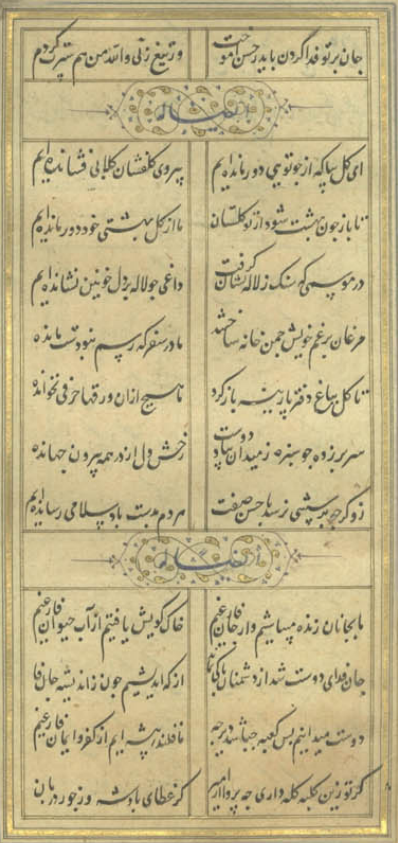 جان بر تو فدا کردن باید ز حسن آموخت
ور تیغ زنی والله من هم سپرت کردم
ایضا له
ای گل بیا که از چو تویی دور مانده‌ایم
بر روی گلفشان گلابی فشانده‌ایم
تا باز چون بهشت شود از تو گلستان
ما از گل بهشتی خود دور مانده‌ایم
در موسمی که سنگ ز لاله نشان گرفت
داغی چو لاله بر دل خونین نشانده‌ایم
مرغان برغم خویش چمن خانه ساختند
ما در سفر که رسم
تا گل بباغ دفتر پارینه باز کرد
ما هیچ ازان ورقها حرفی نخوانده
سر بر زده چو سبزه زمیدان دوست
رخش دل از در همه بیرون جهانده
زو گر چه پرسشی نرسد با حسن
هر دم بدست باد سلامی رسانده‌ایم
ایضا له
ما بجانان زنده میباشیم و از جان فارغیم
خاک کویش یافتیم از آب حیوان فارغیم
جان فدای دوست شد از دشمنان باکی
از که اندیشیم چون ز اندیشه جان فا
دوست میدانیم بس کعبه چه باشد دیر چه
ما قلندر پیشه‌ایم از کفر و ایمان فارغیم
گر تو زین کلبه کله داری چه پروا
کز عطای پادشه وز جور دربان